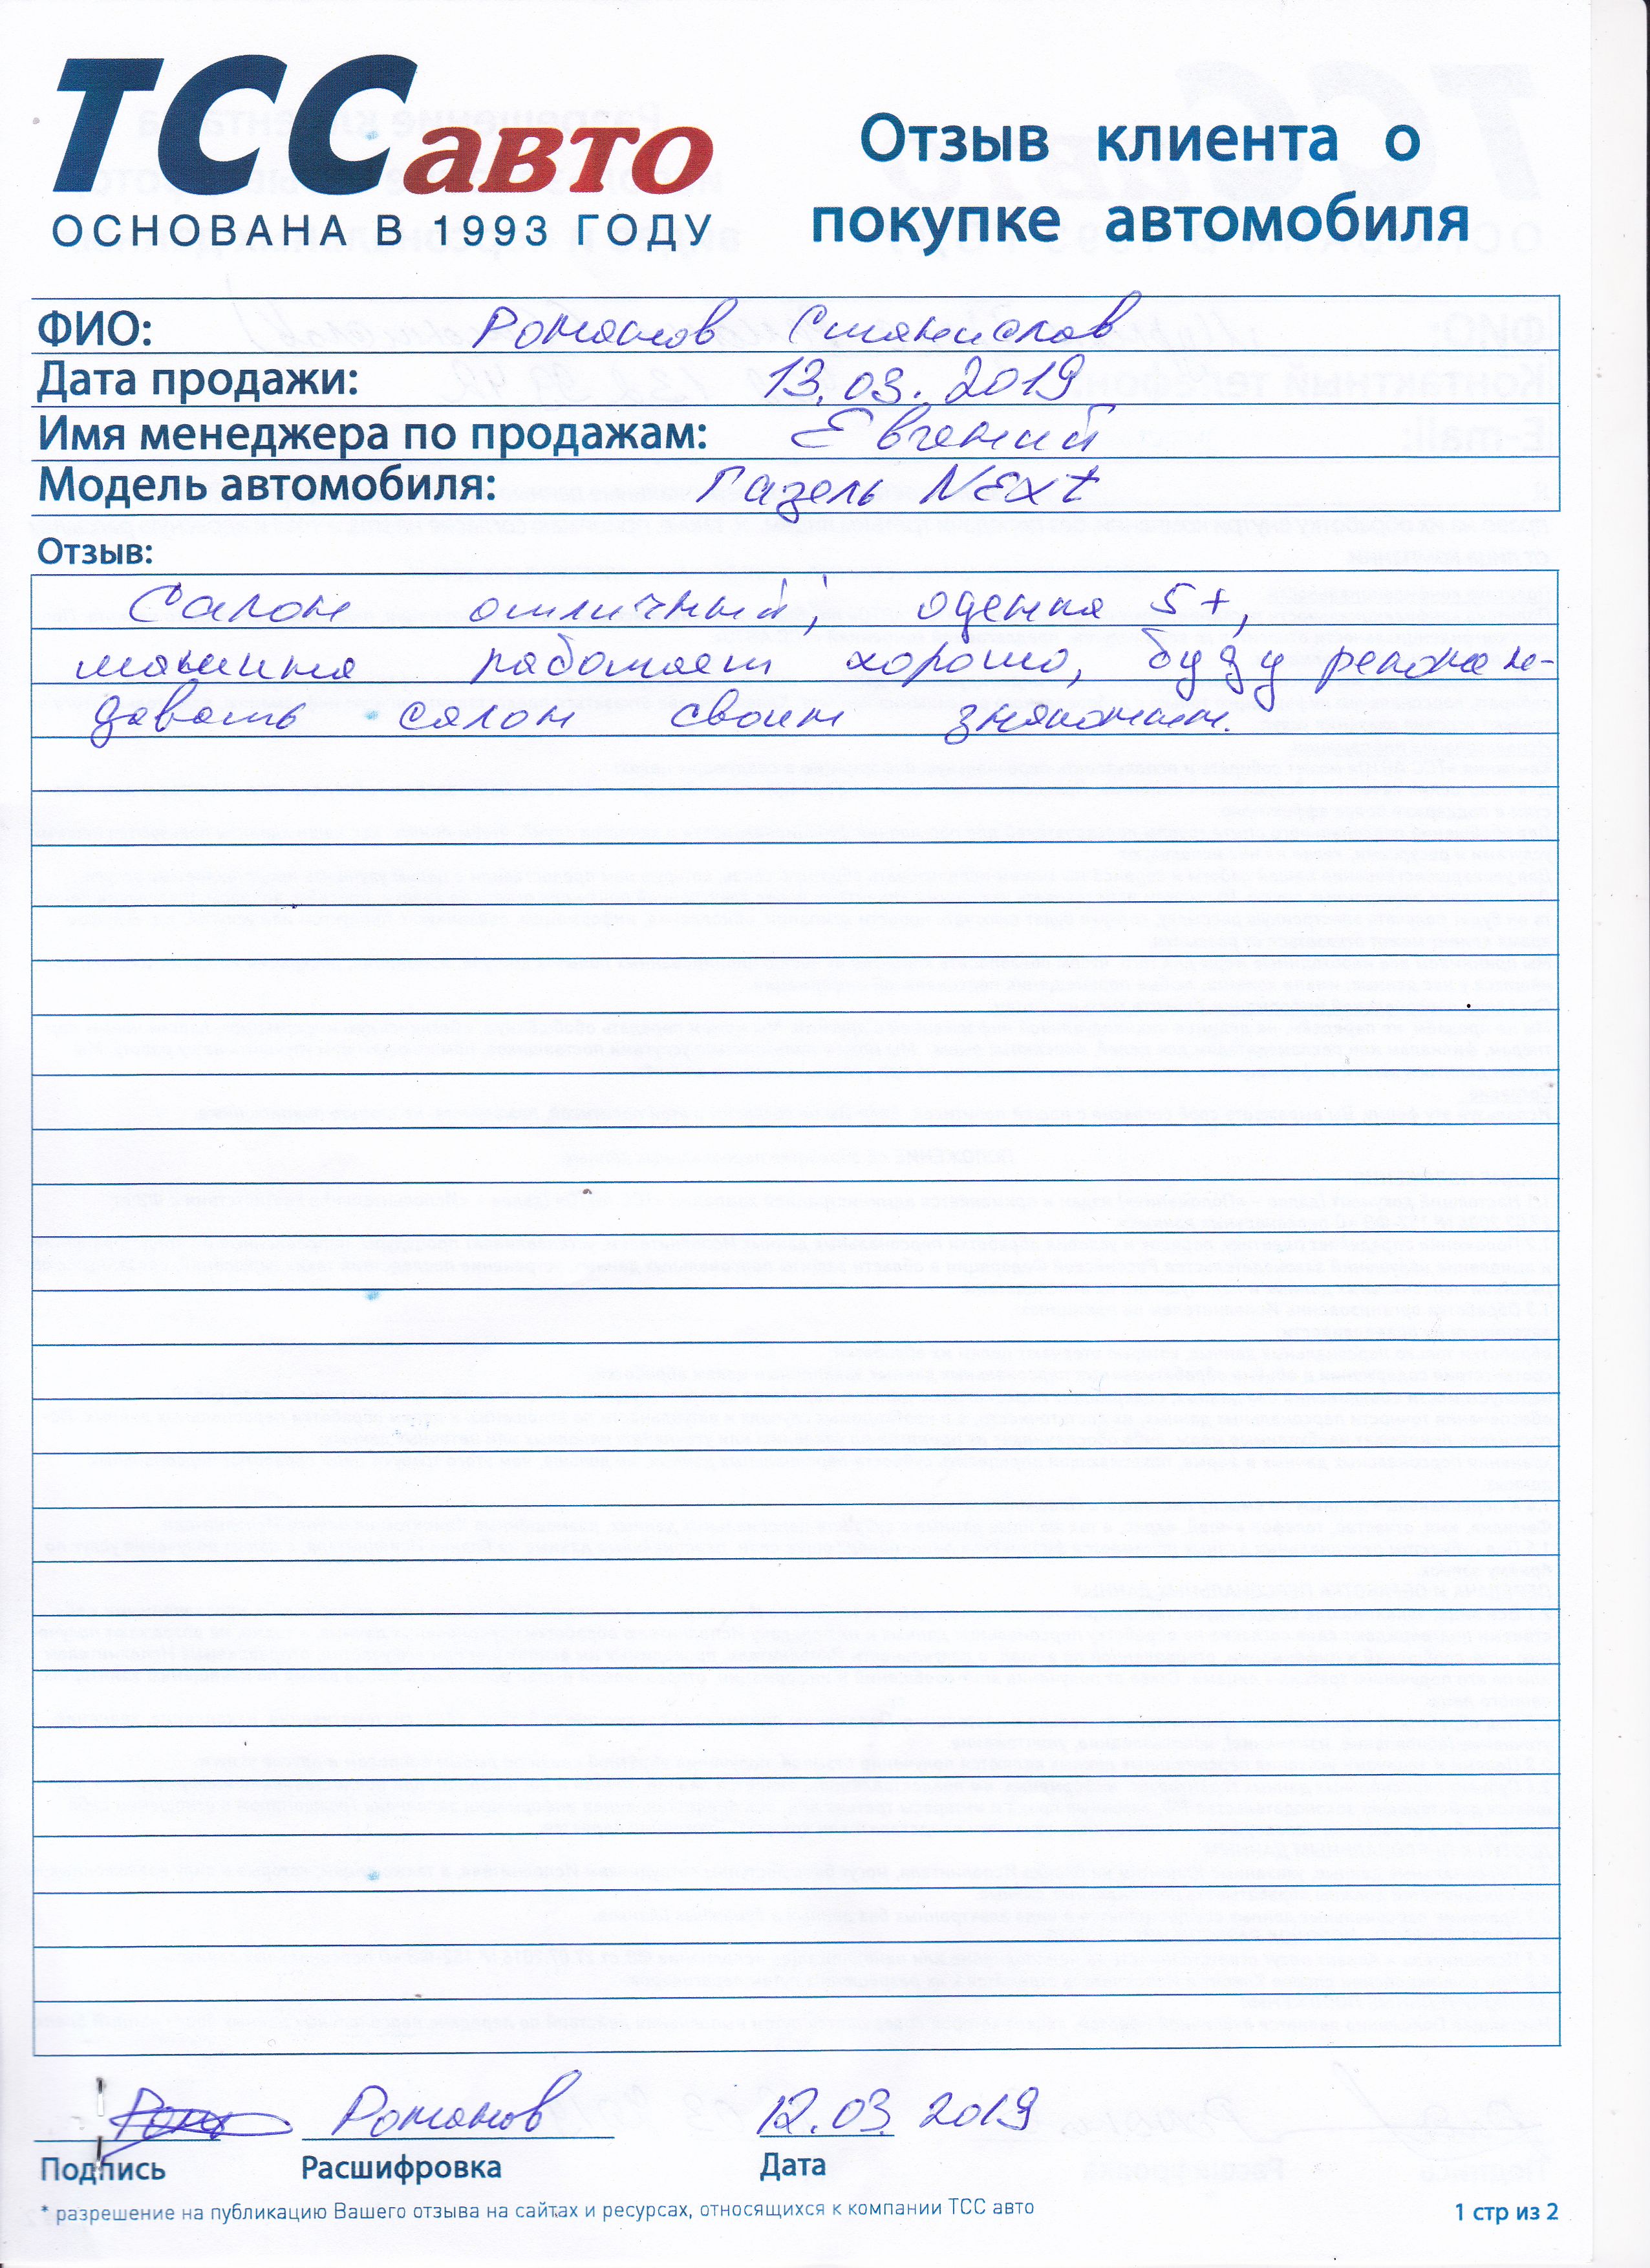 ТССавто
ОСНОВАНА В 1993 ГОДУ
Отзыв клиента о
покупке автомобиля
ФИО: Романов Станислав
Дата продажи: 13.03.2019
Имя менеджера по продажам: Евгений
Модель автомобиля: Газель NExt
Отзыв:
Салон отличный, оценка 5+,
машина работает хорошо, буду рекомен-
давать салон своим знакомым.
Романов 12.03.2019
Подпись Расшифровка Дата
* разрешение на публикацию Вашего отзыва на сайтах и ресурсах, относящихся к компании ТСС авто
1 стр из 2